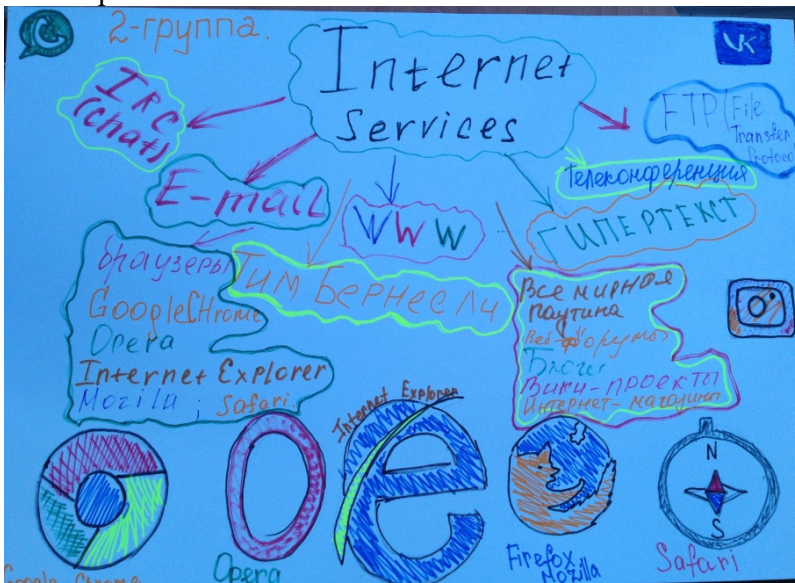 2-группа.
VK
Internet
services
IRC
(chat)
FTP (File
Transfer
Protocol
E-mail
WWW
Телеконференция
ГИПЕРТЕКСТ
браузеры
GoogleCHrome
Opera
Internet Explorer
Mozila ; Safari
Тим Бернесли
Все мирная
паутина
Веб-форумы
Блоги
Вики-проекты
Интернет-магазины
Internet Explorer
N
S
Google Chrome
Opera
Firefox
Mozilla
Safari